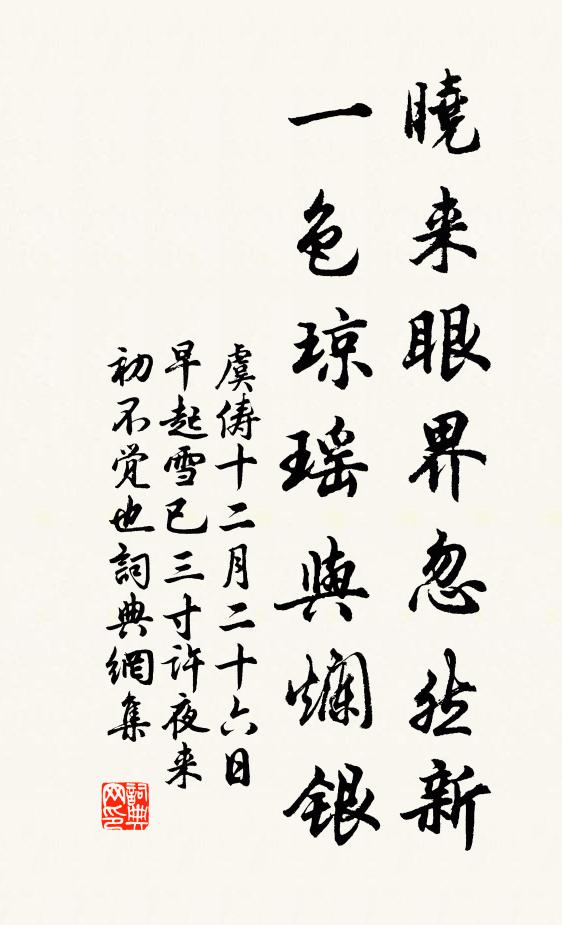 曉来眼界忽然新
一色琼瑶與爛銀
虞俦十二月二十六日
早起雪已三寸許夜来
初不覚也詞典網集
詞典网印